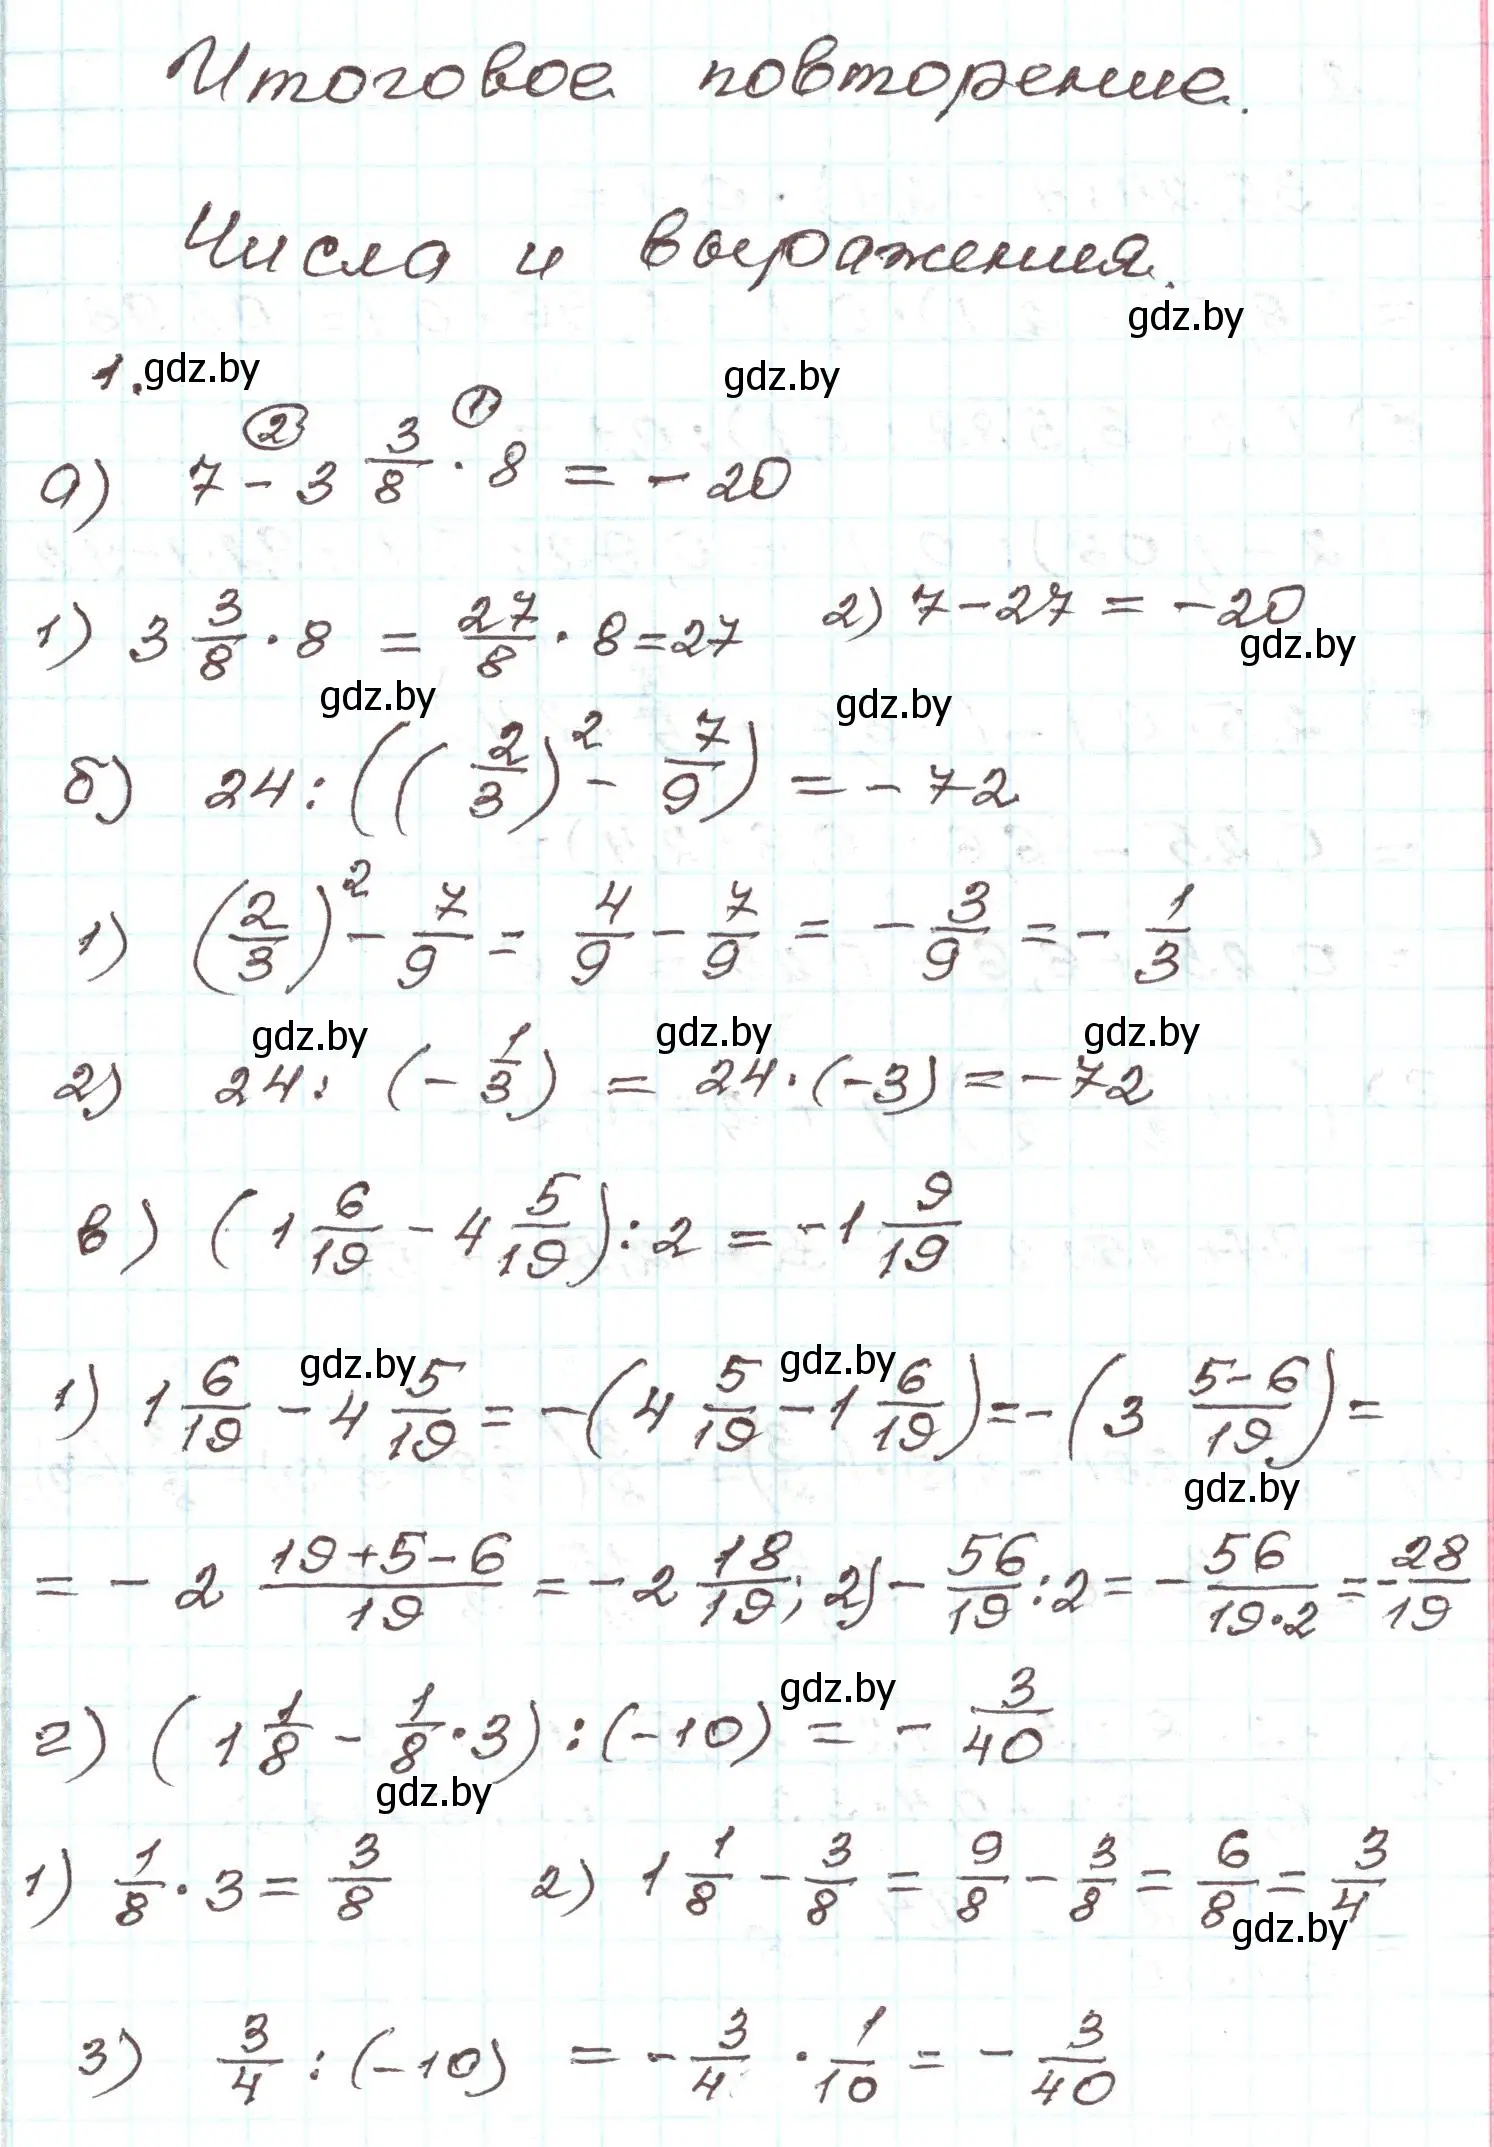 Итоговое повторение.
Числа и выражения.
gdz.by
1. gdz.by gdz.by
② ①
а) 7 - 3 3/8 · 8 = - 20
1) 3 3/8 · 8 = 27/8 · 8 = 27 2) 7 - 27 = - 20
gdz.by
gdz.by gdz.by
б) 24 : ((2/3)² - 7/9) = - 72
1) (2/3)² - 7/9 = 4/9 - 7/9 = - 3/9 = - 1/3
gdz.by gdz.by gdz.by
2) 24 : (- 1/3) = 24 · (-3) = - 72
в) (1 6/19 - 4 5/19) : 2 = - 1 9/19
gdz.by gdz.by
1) 1 6/19 - 4 5/19 = - (4 5/19 - 1 6/19) = - (3 (5-6)/19) =
gdz.by
= - 2 (19+5-6)/19 = - 2 18/19; 2) - 56/19 : 2 = - 56/(19·2) = - 28/19
gdz.by
г) (1 1/8 - 1/8 · 3) : (-10) = - 3/40
gdz.by
1) 1/8 · 3 = 3/8 2) 1 1/8 - 3/8 = 9/8 - 3/8 = 6/8 = 3/4
gdz.by
3) 3/4 : (-10) = - 3/4 · 1/10 = - 3/40